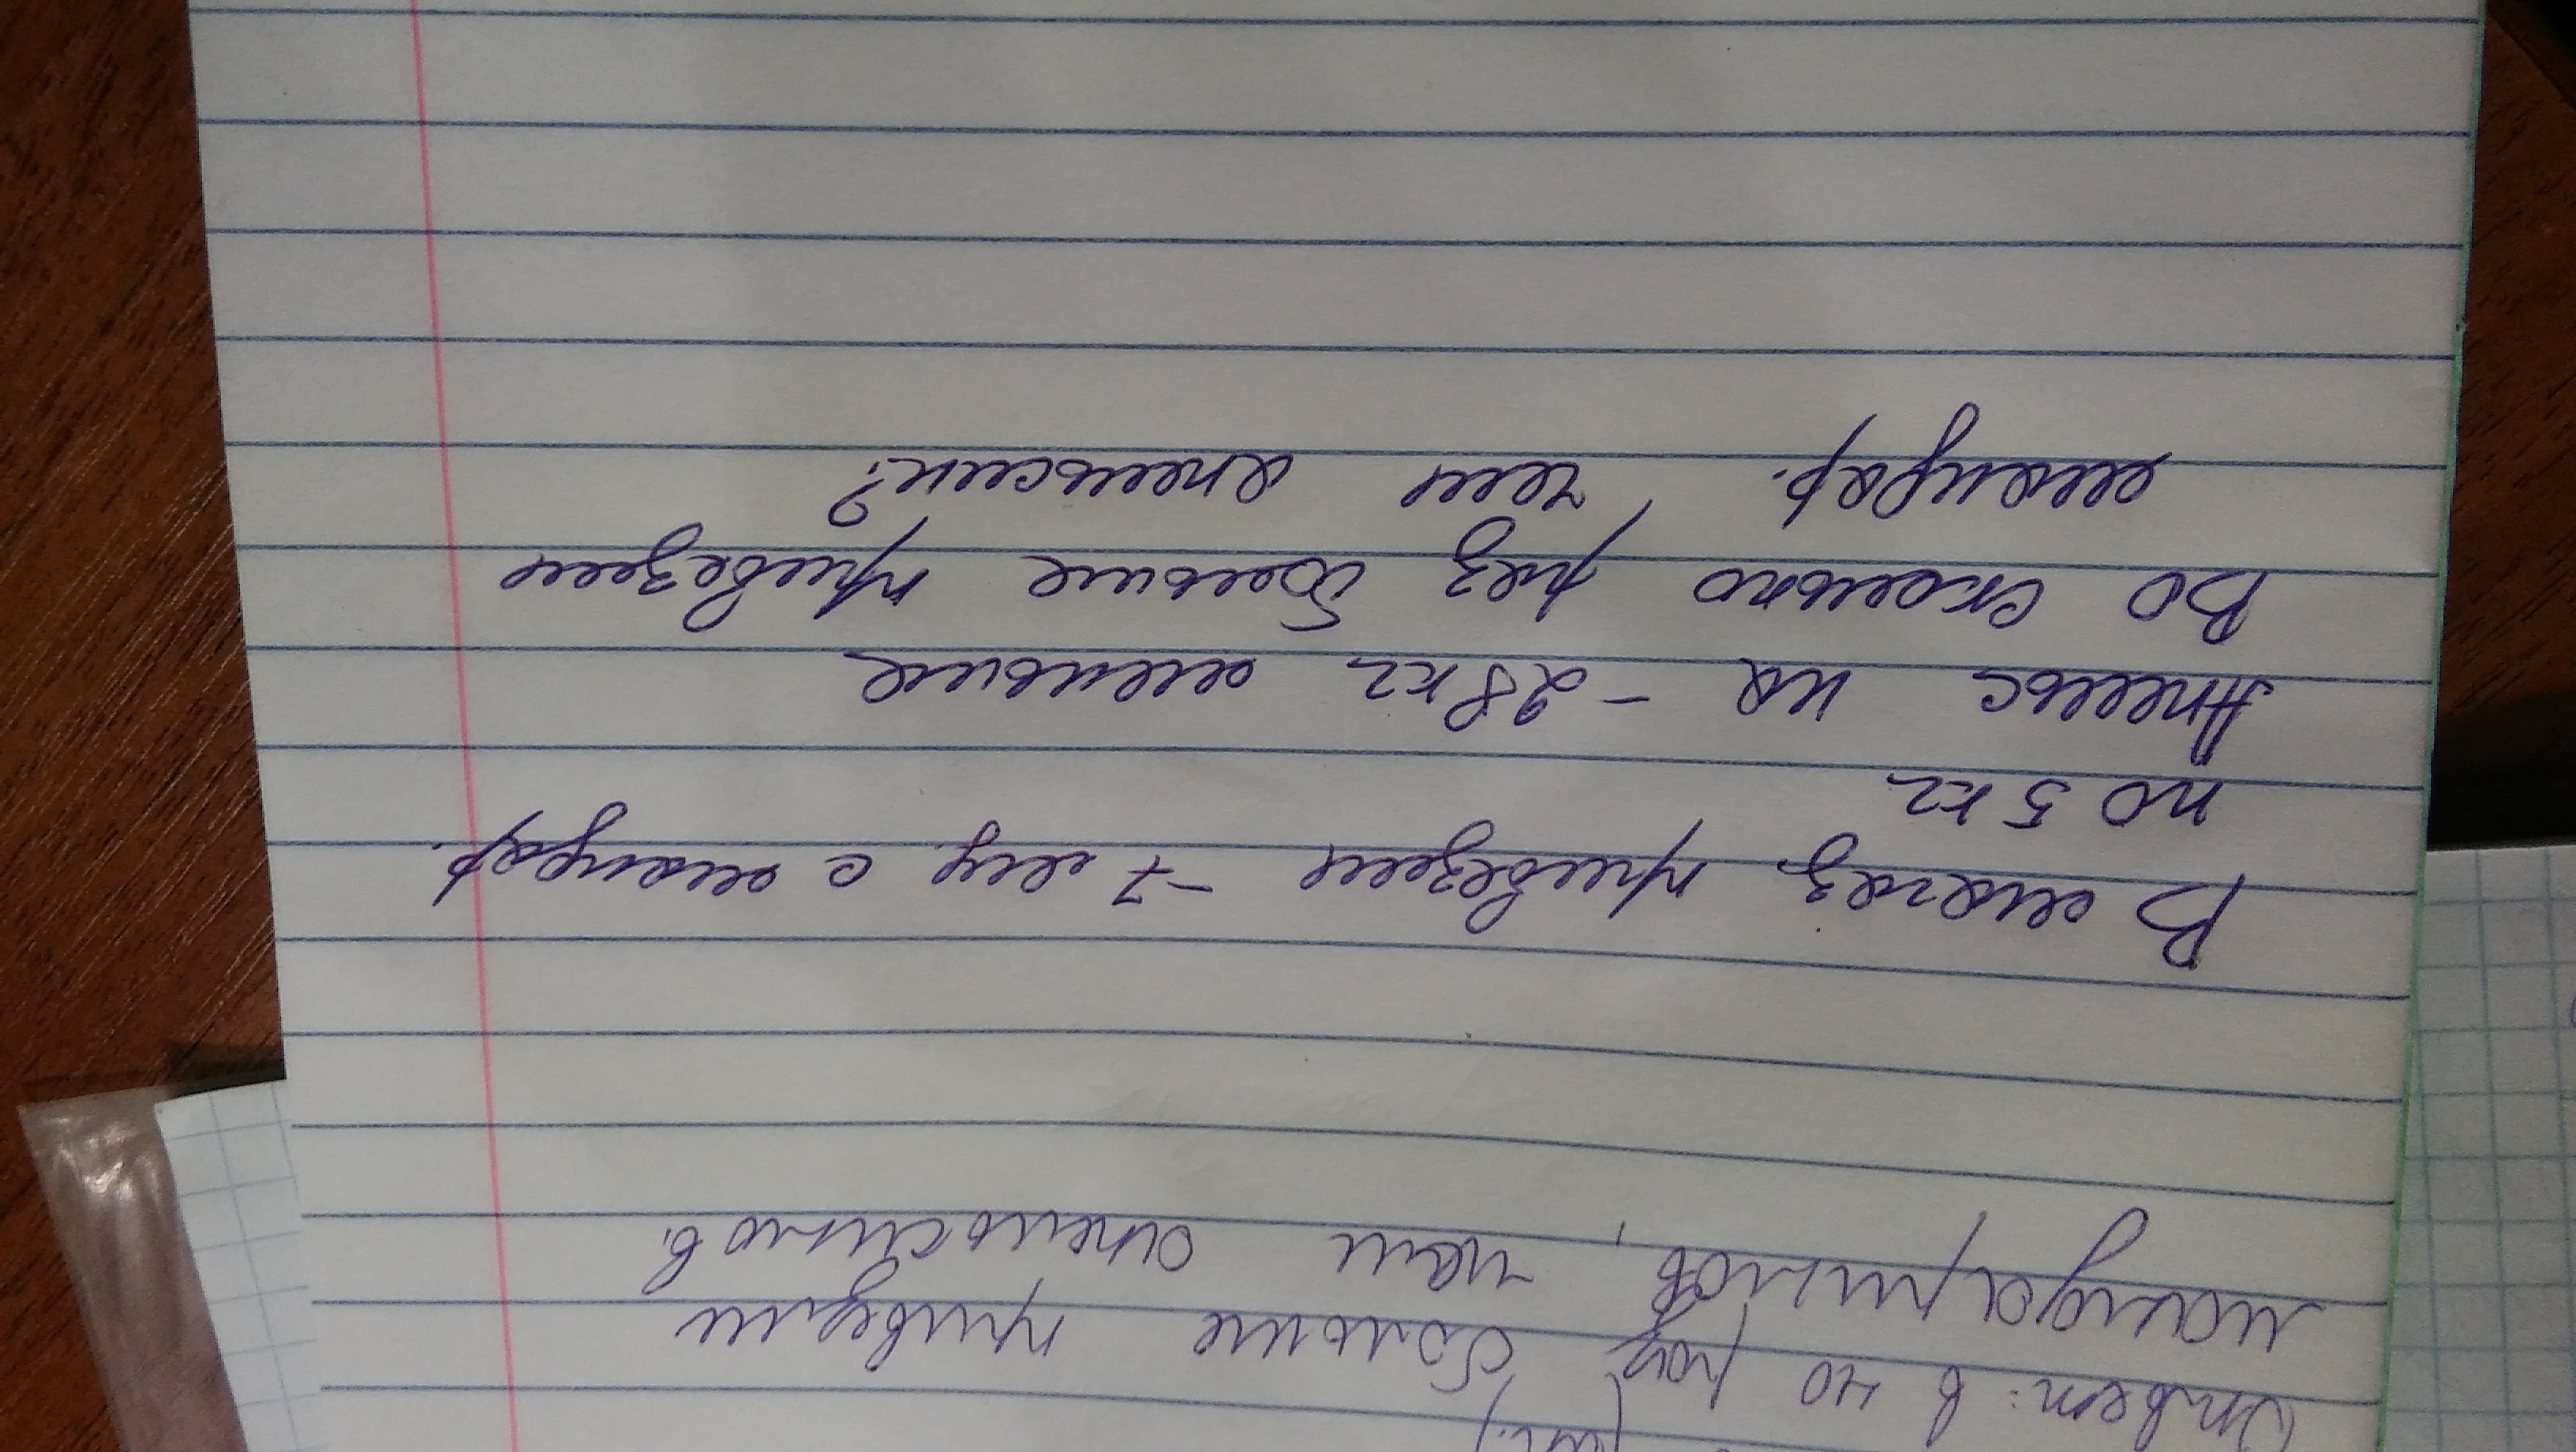 Ответ: в 40 раз больше привезли
мандаринов, чем апельсинов.
В магаз привезли -7 ящ. с мандар.
по 5 кг
Апельс на - 28 кг меньше
Во сколько раз больше привезли
мандар. чем апельсин?